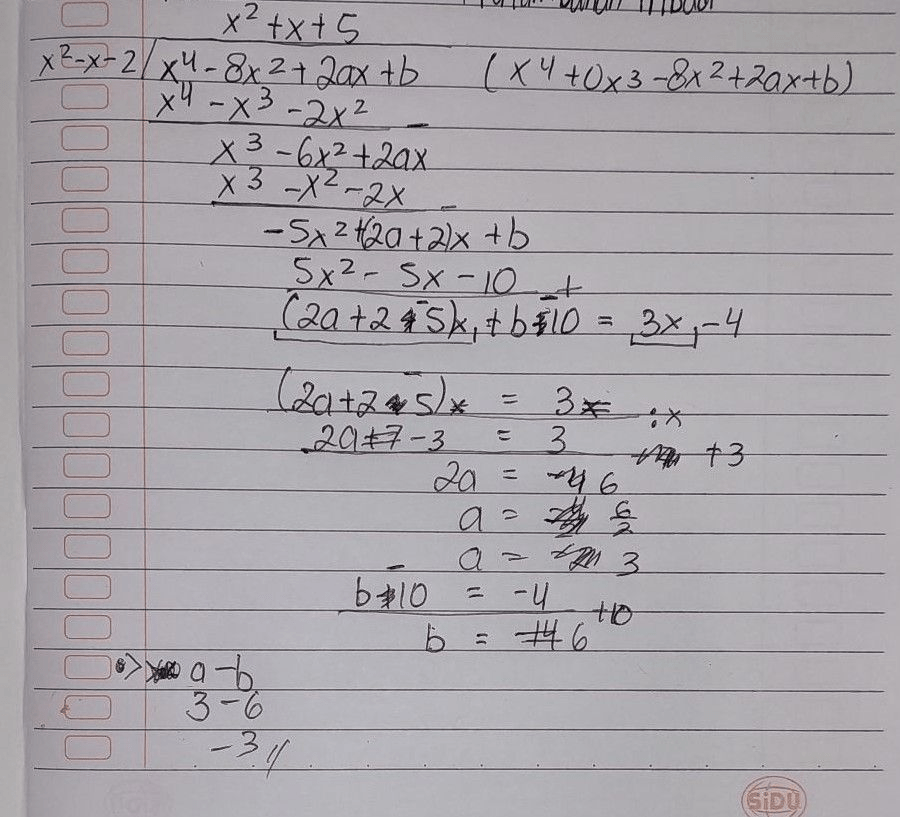 x² + x + 5
x² - x - 2 / x⁴ - 8x² + 2ax + b (x⁴ + 0x3 - 8x² + 2ax + b)
x⁴ - x³ - 2x² -
x³ - 6x² + 2ax
x³ - x² - 2x -
-5x² + (2a + 2)x + b
5x² - 5x - 10 +
(2a + 2 - 5)x + b - 10 = 3x, -4
(2a + 2 - 5)x = 3x : x
2a - 3 = 3 +3
2a = 6
a = 6/2
a = 3
b - 10 = -4 +10
b = 6
=> a - b
3 - 6
-3 //
SiDU